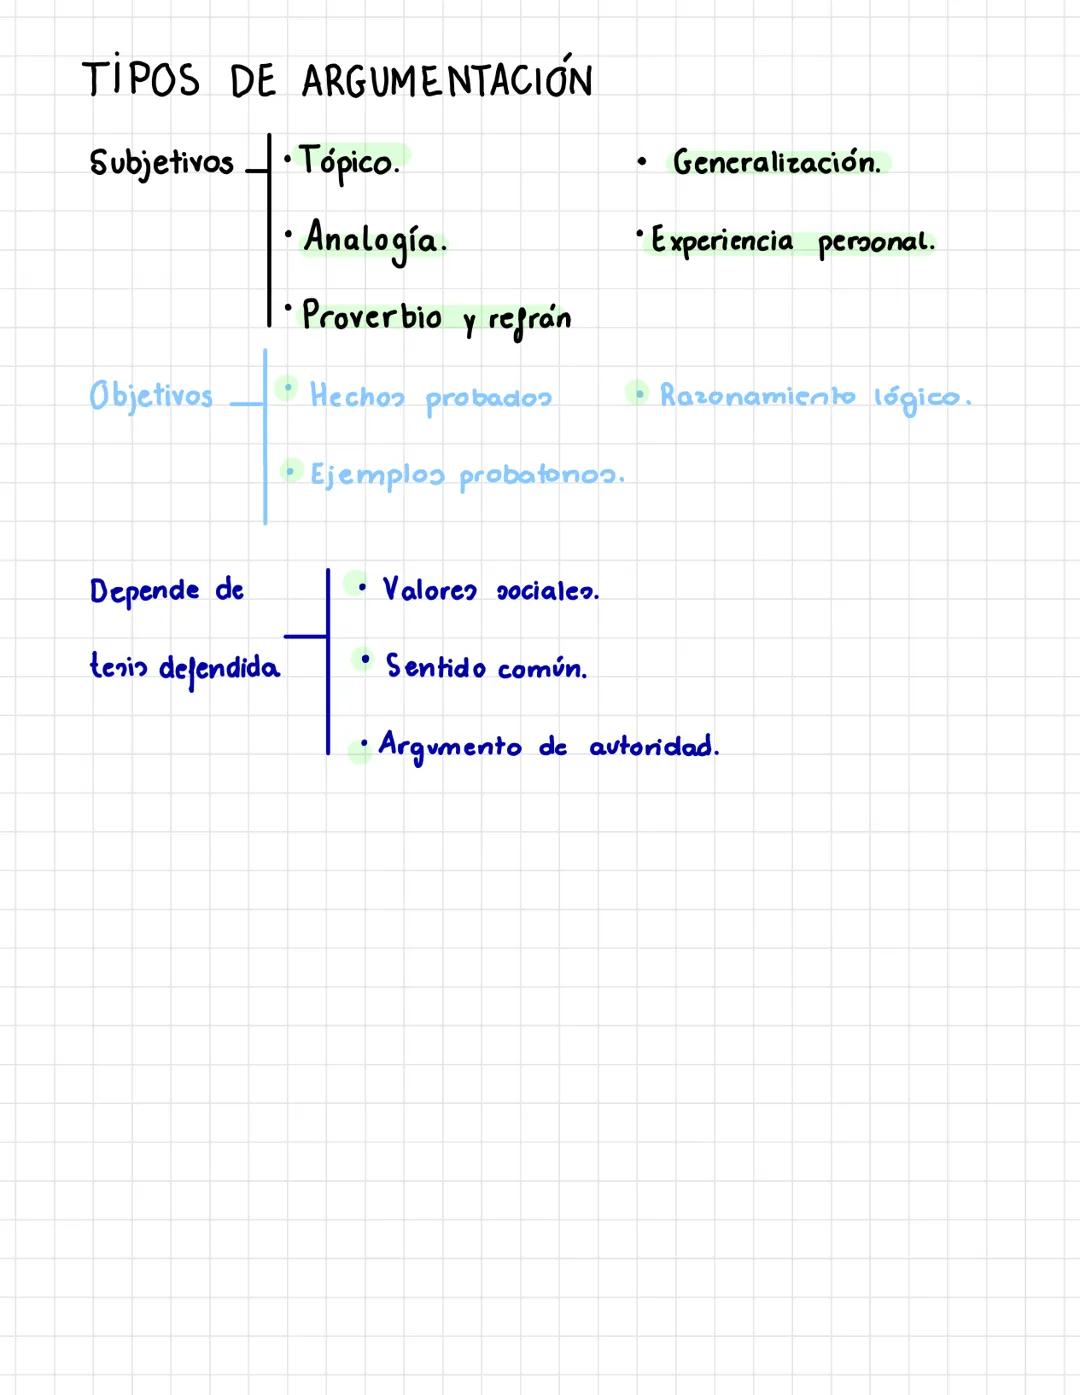 TIPOS DE ARGUMENTACIÓN
Subjetivos
• Tópico.
• Generalización.
• Analogía.
• Experiencia personal.
• Proverbio y refrán
Objetivos
• Hechos probados
• Razonamiento lógico.
• Ejemplos probatorios.
Depende de
tesis defendida
• Valores sociales.
• Sentido común.
• Argumento de autoridad.